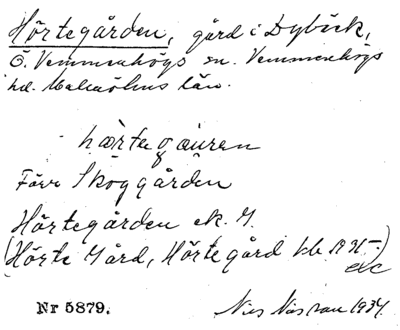 Hörtegården, gård i Dybäck,
Ö. Vemmenhögs sn. Vemmenhögs
hd. Malmöhus län.
hærtegauren
Förr Skoggården
Hörtegården ek. M.
(Hörte Gård, Hörtegård
etc
Nr 5879. 1934.